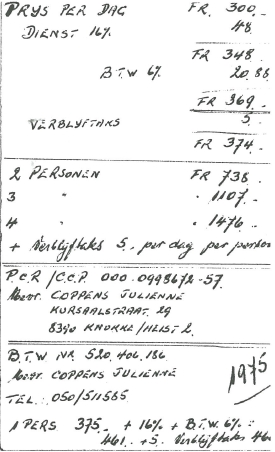 PRYS PER DAG FR 300.-
DIENST 16% 48.
FR 348.
B.T.W 6% 20.88
FR 369.-
VERBLYFTAKS 5.
FR 374.-
2 PERSONEN FR 738.
3 " " 1107.-
4 " " 1476.-
+ Verblijftaks 5. per dag per person
P.C.R /C.C.P. 000-0998672-57
Mevr. COPPENS JULIENNE
KURSAALSTRAAT 29
8390 KNOKKE/HEIST 2
B.T.W NR. 520.406.186
Mevr. COPPENS JULIENNE
1975
TEL: 050/511565
1 PERS 375.- + 16% + B.T.W. 6% =
461. +5. Verblijftaks 466